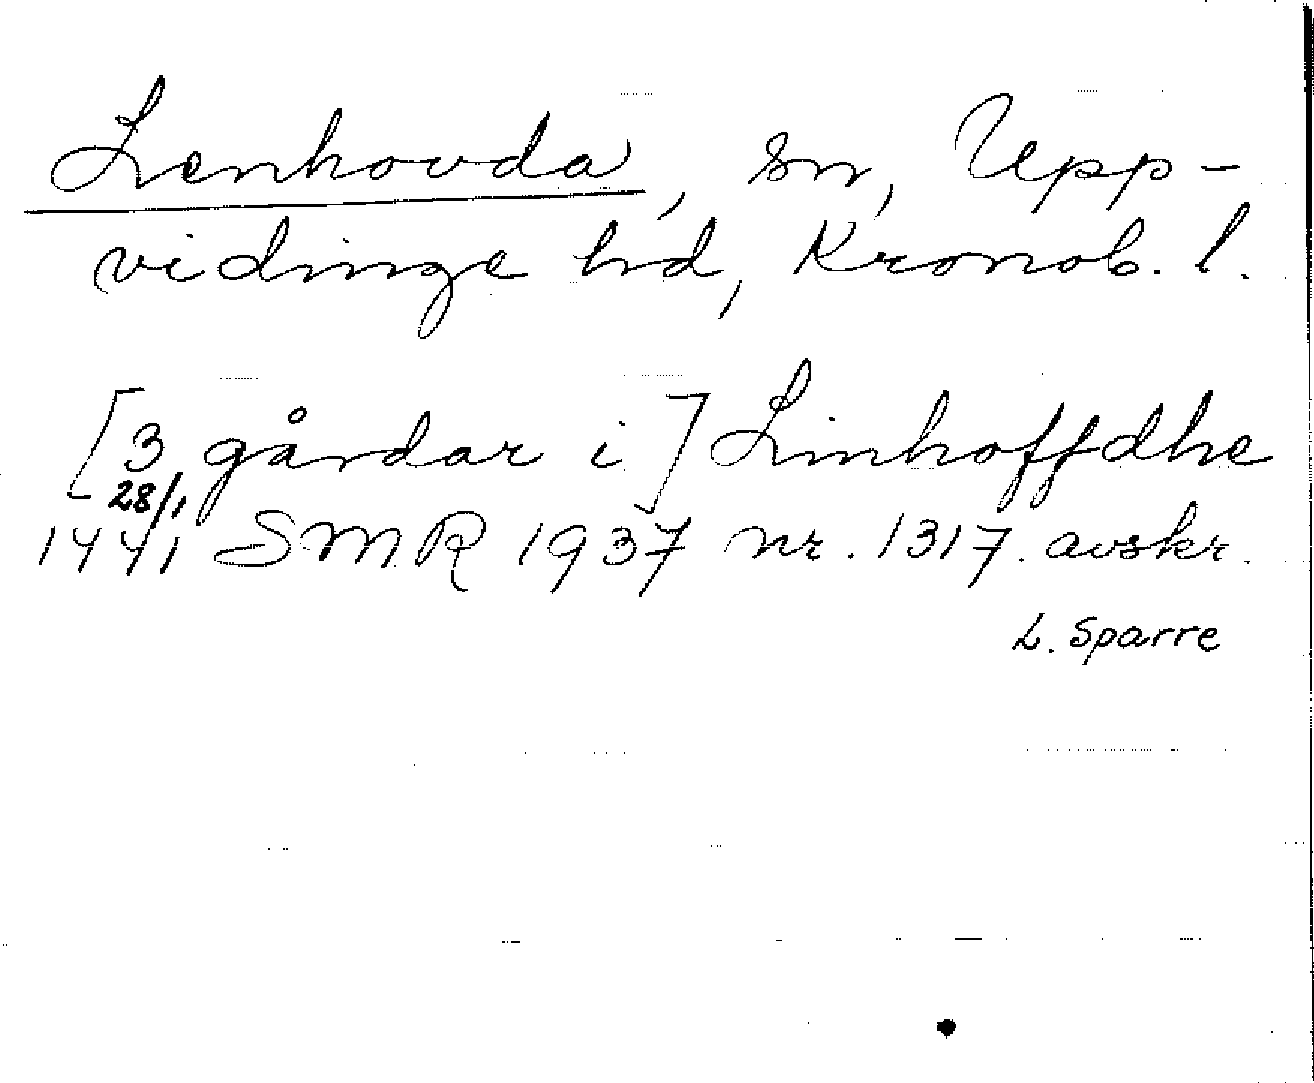 Lenhovda, sn, Upp-
vidinge hd, Kronob. l.
[3 gårdar i] Linhoffdhe
28/1
1441 SMR 1937 nr. 1317. avskr.
L. Sparre